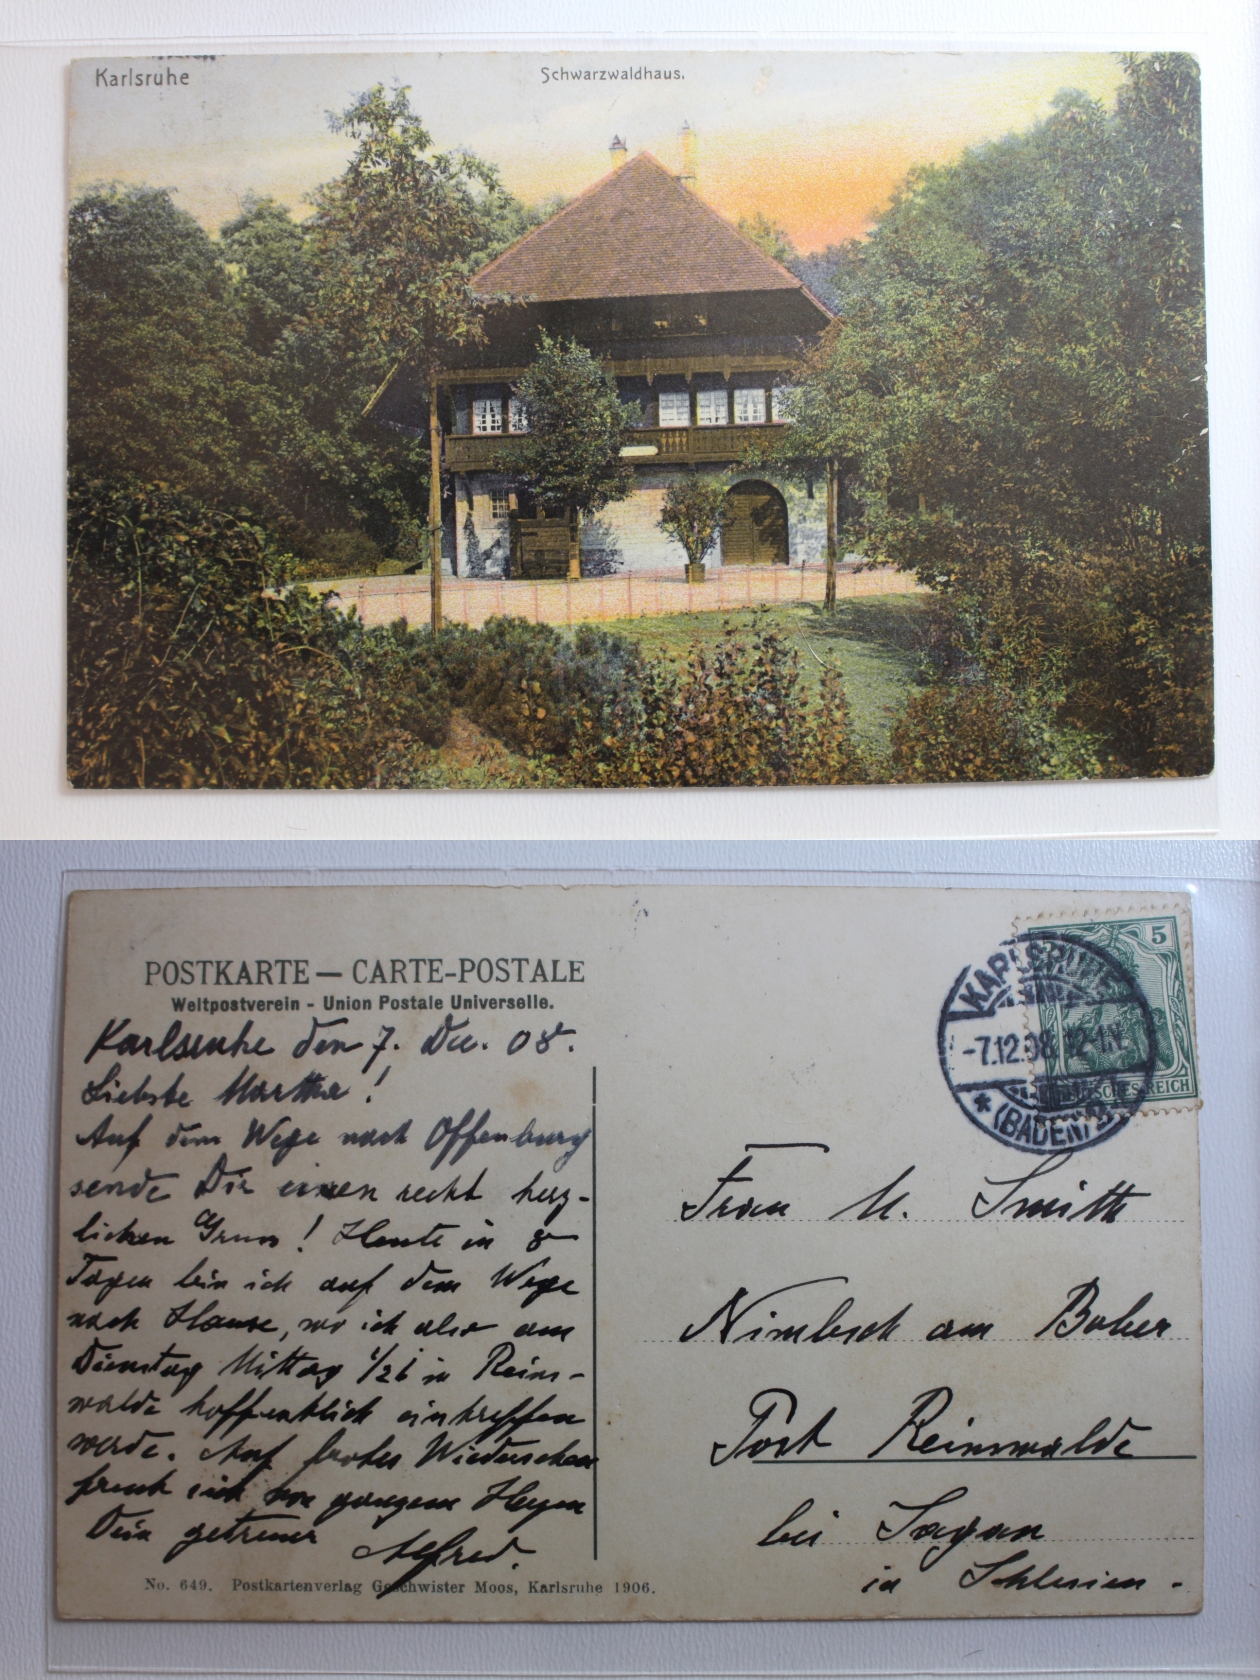 Karlsruhe
Schwarzwaldhaus.
POSTKARTE — CARTE-POSTALE
Weltpostverein - Union Postale Universelle.
Karlsruhe den 7. Dec. 08.
Liebste Martha!
Auf dem Wege nach Offenburg
sende Dir einen recht herz-
lichen Gruss! Heute in 8
Tagen bin ich auf dem Wege
nach Hause, wo ich also am
Dienstag Mittag 1/2 1 in Reins-
walde hoffentlich eintreffen
werde. Auf frohes Wiedersehen
freut sich von ganzem Herzen
Dein getreuer Alfred.
No. 649. Postkartenverlag Geschwister Moos, Karlsruhe 1906.
5
DEUTSCHES REICH
KARLSRUHE
-7.12.08. 12-1N.
* (BADEN)
Frau M. Smith
Nimbsch am Bober
Post Reinswalde
bei Sagan
in Schlesien.